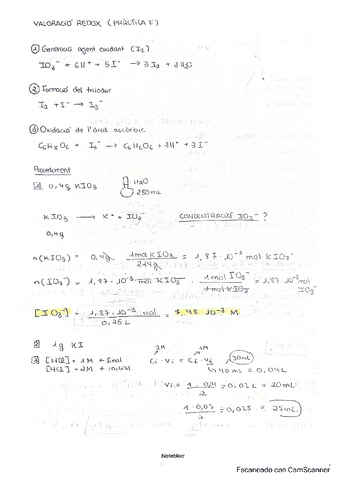 VALORACIÓ REDOX (PRÀCTICA 5)
① Generació agent oxidant (I₂)
IO₃⁻ + 6H⁺ + 5I⁻ → 3I₂ + 3H₂O
② Formació del triiodur
I₂ + I⁻ → I₃⁻
③ Oxidació de l'àcid ascòrbic
C₆H₈O₆ + I₃⁻ → C₆H₆O₆ + 2H⁺ + 3I⁻
Procediment
1 0,4g KIO₃ H₂O 250mL
KIO₃ → K⁺ + IO₃⁻ CONCENTRACIÓ IO₃⁻ ?
0,4g
n(KIO₃) = 0,4g · 1mol KIO₃ / 214g = 1,87 · 10⁻³ mol KIO₃
n(IO₃⁻) = 1,87 · 10⁻³ mol KIO₃ · 1mol IO₃⁻ / 1mol KIO₃ = 1,87 · 10⁻³ mol IO₃⁻
[IO₃⁻] = 1,87 · 10⁻³ mol / 0,25 L = 7,48 · 10⁻³ M
2 1g KI
3 [HCl] = 1M ← final
[HCl] = 2M ← inicial
2M 1M
Ci · Vi = Cf · Vf 50mL
40mL = 0,04L
Vi = 1 · 0,04 / 2 = 0,02L = 20mL
1 · 0,05 / 2 = 0,025 = 25mL
Notebloc
Escaneado con CamScanner